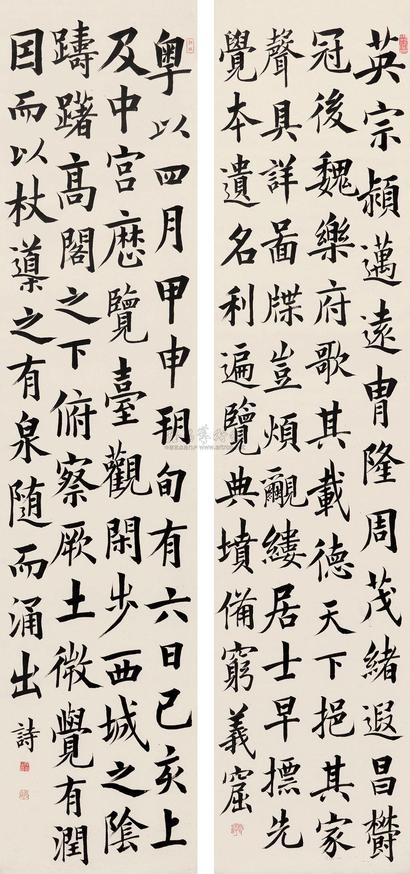 英宗頴邁遠胄隆周茂緒遐昌欝
冠後魏樂府歌其載德天下挹其家
聲具詳啚牒豈煩覼縷居士早摽先
覺本遺名利遍覽典墳備窮義窟
粤以四月甲申玥旬有六日己亥上
及中宮歷覽臺觀閑步西城之陰
躊躇高閣之下俯察厥土微覺有潤
因而以杖導之有泉隨而涌出 詩